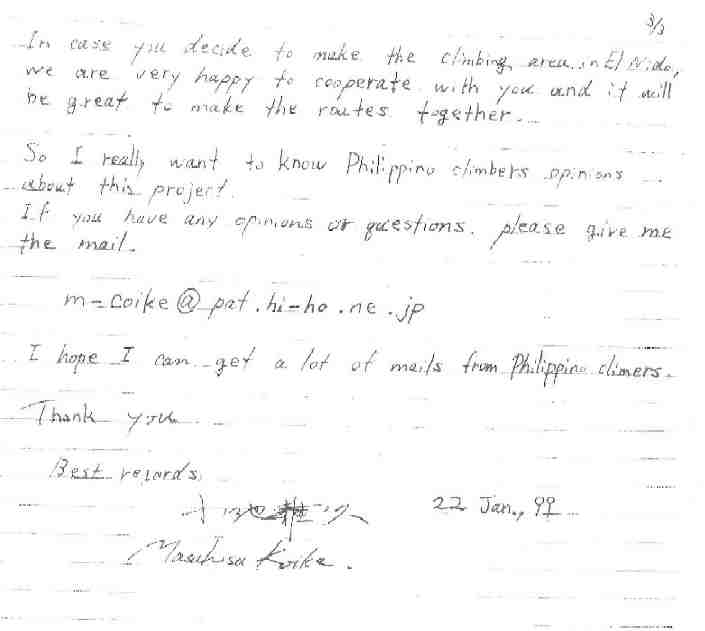 3/3
In case you decide to make the climbing area in El Nido,
we are very happy to cooperate with you and it will
be great to make the routes together.
So I really want to know Philippino climbers opinions
about this project.
If you have any opinions or questions, please give me
the mail.
m-coike@pat.hi-ho.ne.jp
I hope I can get a lot of mails from Philippino climers.
Thank you
Best regards
22 Jan., 99
Masahisa Koike.